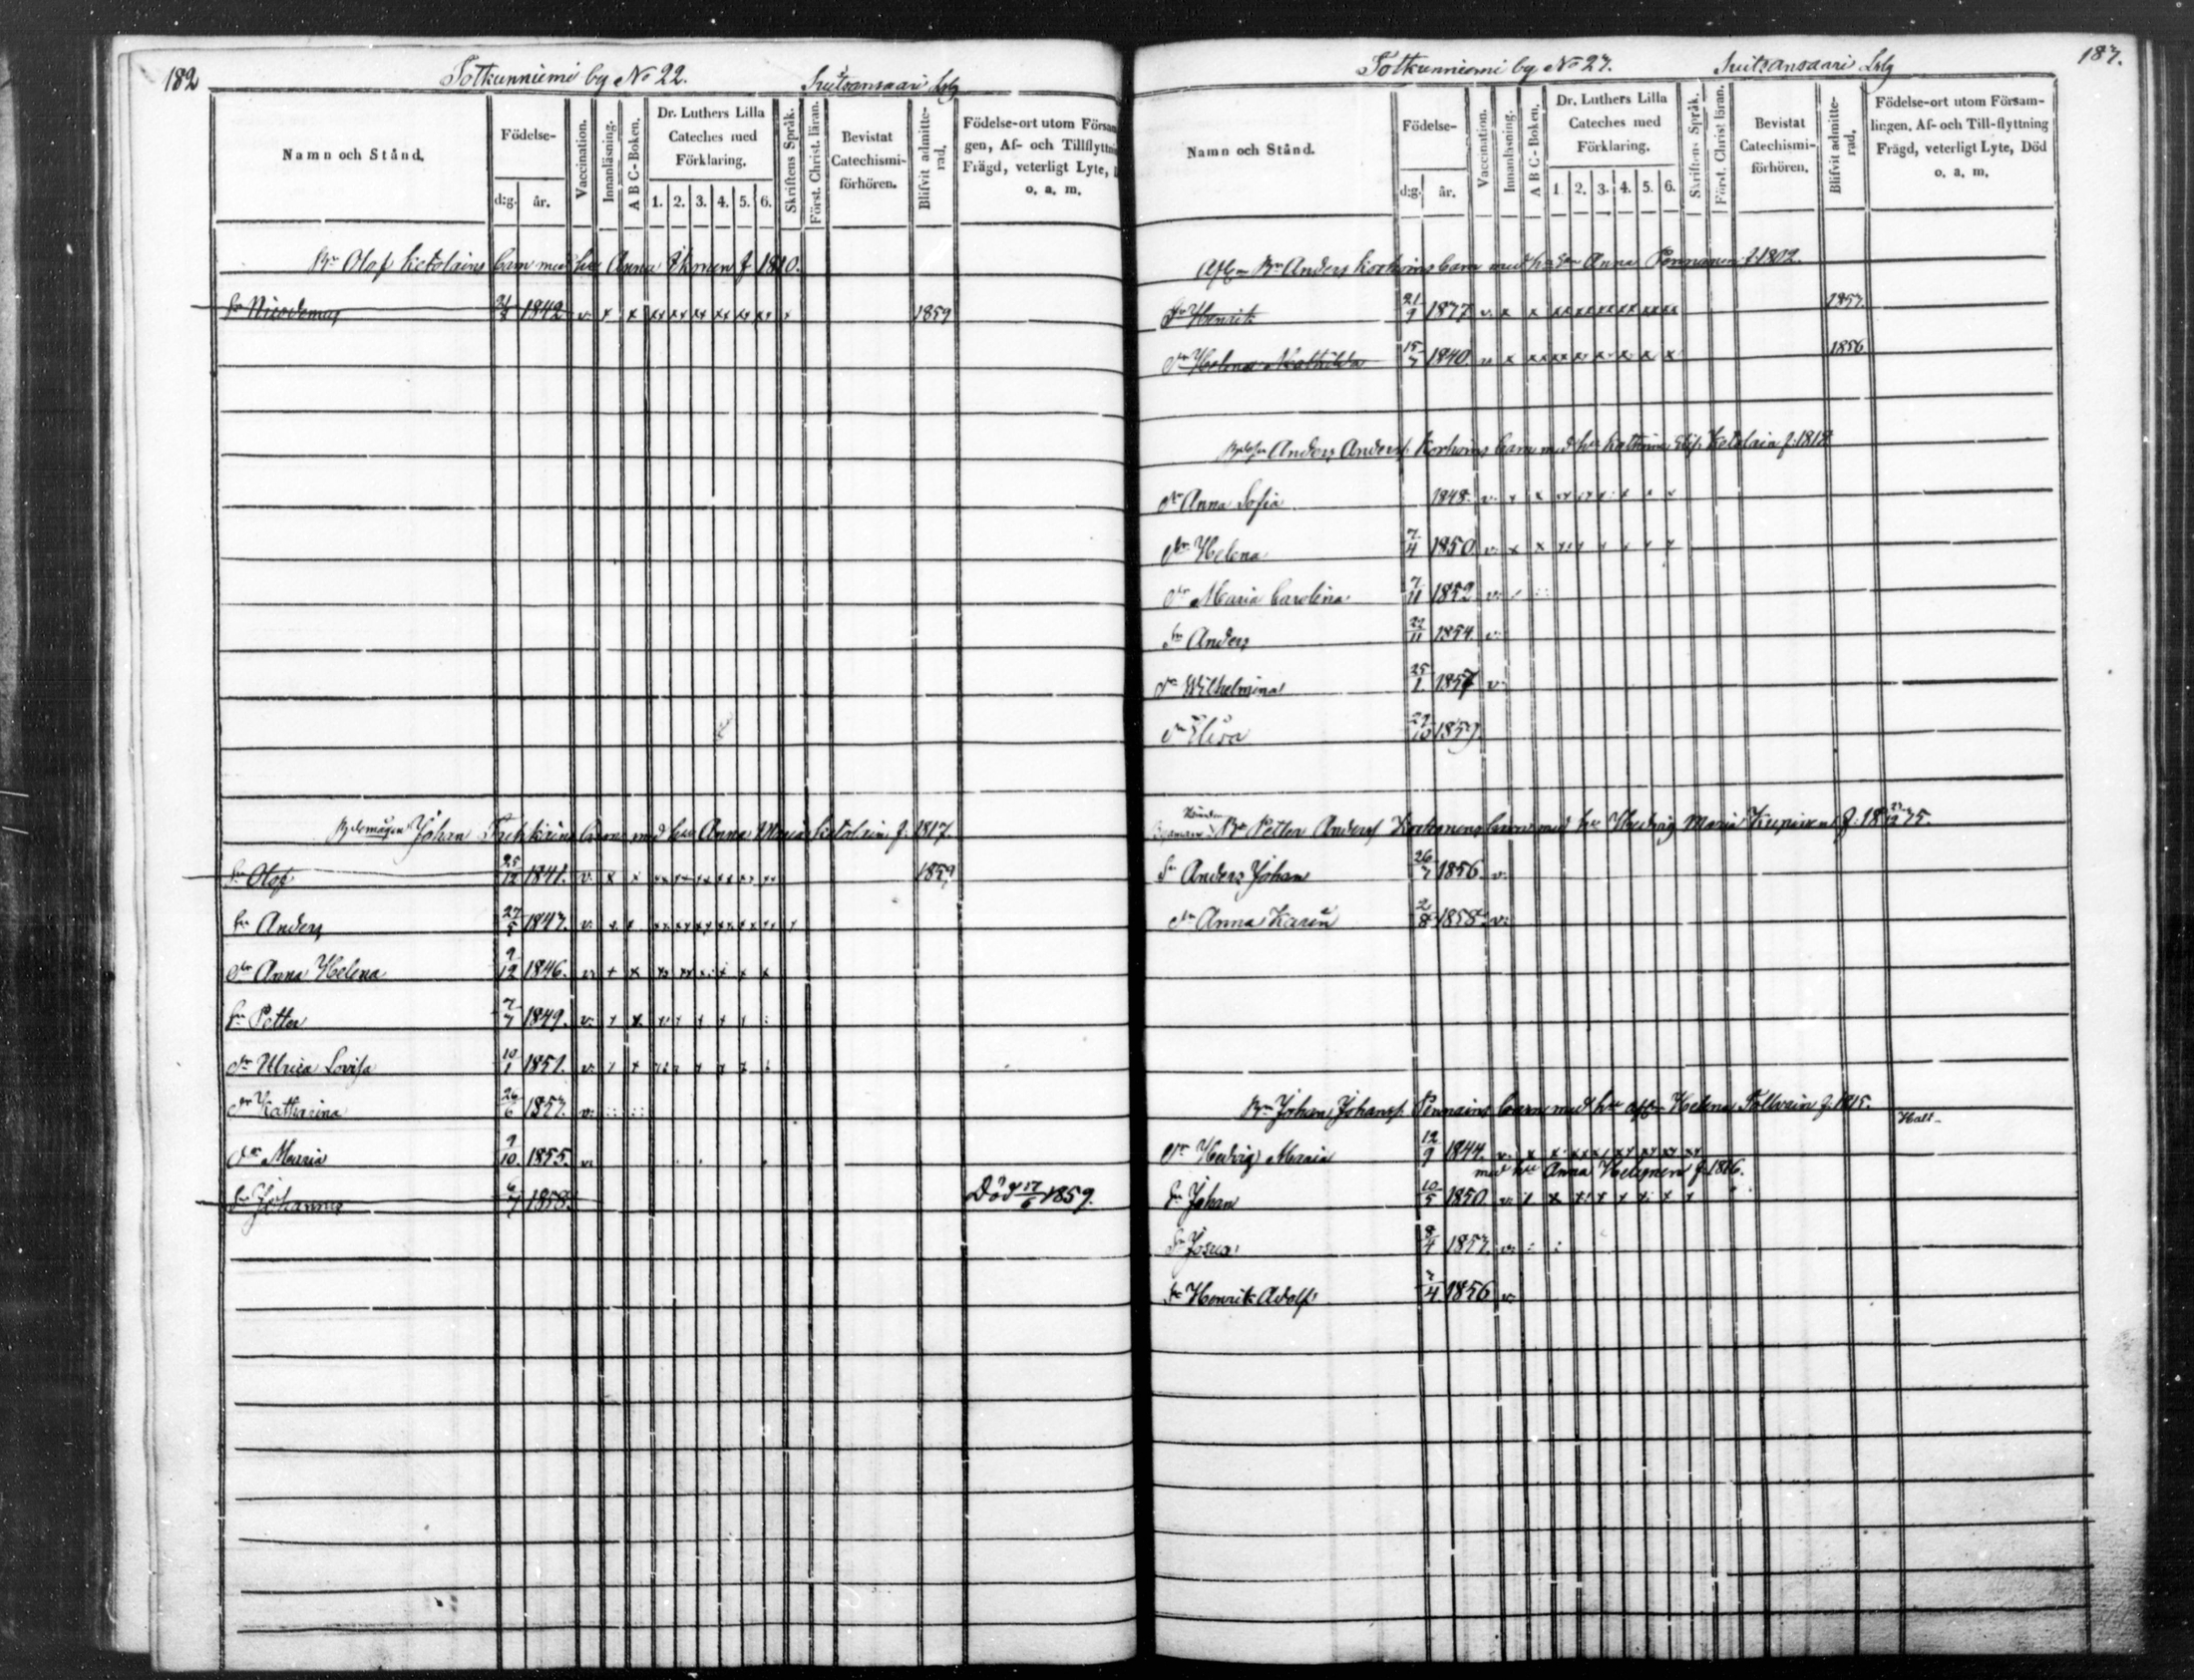 182
Totkunniemi by No 22. Suitsansaari Lg
Namn och Stånd.
Födelse-
d:g. år.
Vaccination.
Innanläsning.
A B C-Boken.
Dr. Luthers Lilla
Cateches med
Förklaring.
1. 2. 3. 4. 5. 6.
Skriftens Språk.
Först. Christ. läran.
Bevistat
Catechismi-
förhören.
Blifvit admitte-
rad.
Födelse-ort utom Försam
gen, Af- och Tillflyttnin
Frägd, veterligt Lyte,
o. a. m.
Bn Olof Ketolains barn med hu Anna Ikonen f. 1810.
Sn Nicodemus 1842 v. x x xx xx xx xx xx xx x 1859
Johan barn med hu Anna Maria Ketolain f. 1817
Sn Olof 25/12 1841. v. x x xx xx xx xx xx xx 1859
Sn Anders 1847. v. x x xx xx xx xx xx xx x
Dr Anna Helena 9/12 1846. v. x x
Sn Petter 7/7 1849. v. x x
Dr Ulrica Lovisa 10/1 1851. v. x x
Dr Katharina 26/6 1857. v.
Dr Maria 9/10 1855. v.
Sn Johannes 6/7 1858. Död 17/6 1859.
187.
Totkunniemi by No 27. Suitsansaari Lg
Namn och Stånd.
Födelse-
d:g. år.
Vaccination.
Innanläsning.
A B C-Boken.
Dr. Luthers Lilla
Cateches med
Förklaring.
1. 2. 3. 4. 5. 6.
Skriftens Språk.
Först. Christ läran.
Bevistat
Catechismi-
förhören.
Blifvit admitte-
rad.
Födelse-ort utom Försam-
lingen, Af- och Till-flyttning
Frägd, veterligt Lyte, Död
o. a. m.
Afl. Bn Anders Korhoins barn med Anna Pennanen f. 1802.
Sn Henrik 21/9 1877 v. x x xx xx xx xx xx xx 1857.
Dr Helena Mathilda 15/7 1840. v. x 1856
Anders Andersf. Korhoins barn med hu Kathrina Ketolain f. 1818
Dr Anna Sofia 1848. v.
Dr Helena 7/4 1850 v. x x
Dr Maria Carolina 7/11 1852 v.
Sn Anders 22/11 1854. v.
Dr Wilhelmina 25/1 1857 v.
Dr Elisa 1859
Bn Petter Andersf Korhonens barn med hu Hedvig Maria
Sn Anders Johan 26/7 1856. v.
Dr Anna Karin 2/8 1858. v.
Bn Johan Johansf. Pennains barn med hu Helena
Dr Hedvig Maria 12/9 1844. v. x x
med hu Anna f. 1816.
Sn Johan 10/5 1850. v. x x
Sn Josua 8/4 1857. v.
Sn Henrik Adolf 7/4 1856 v.